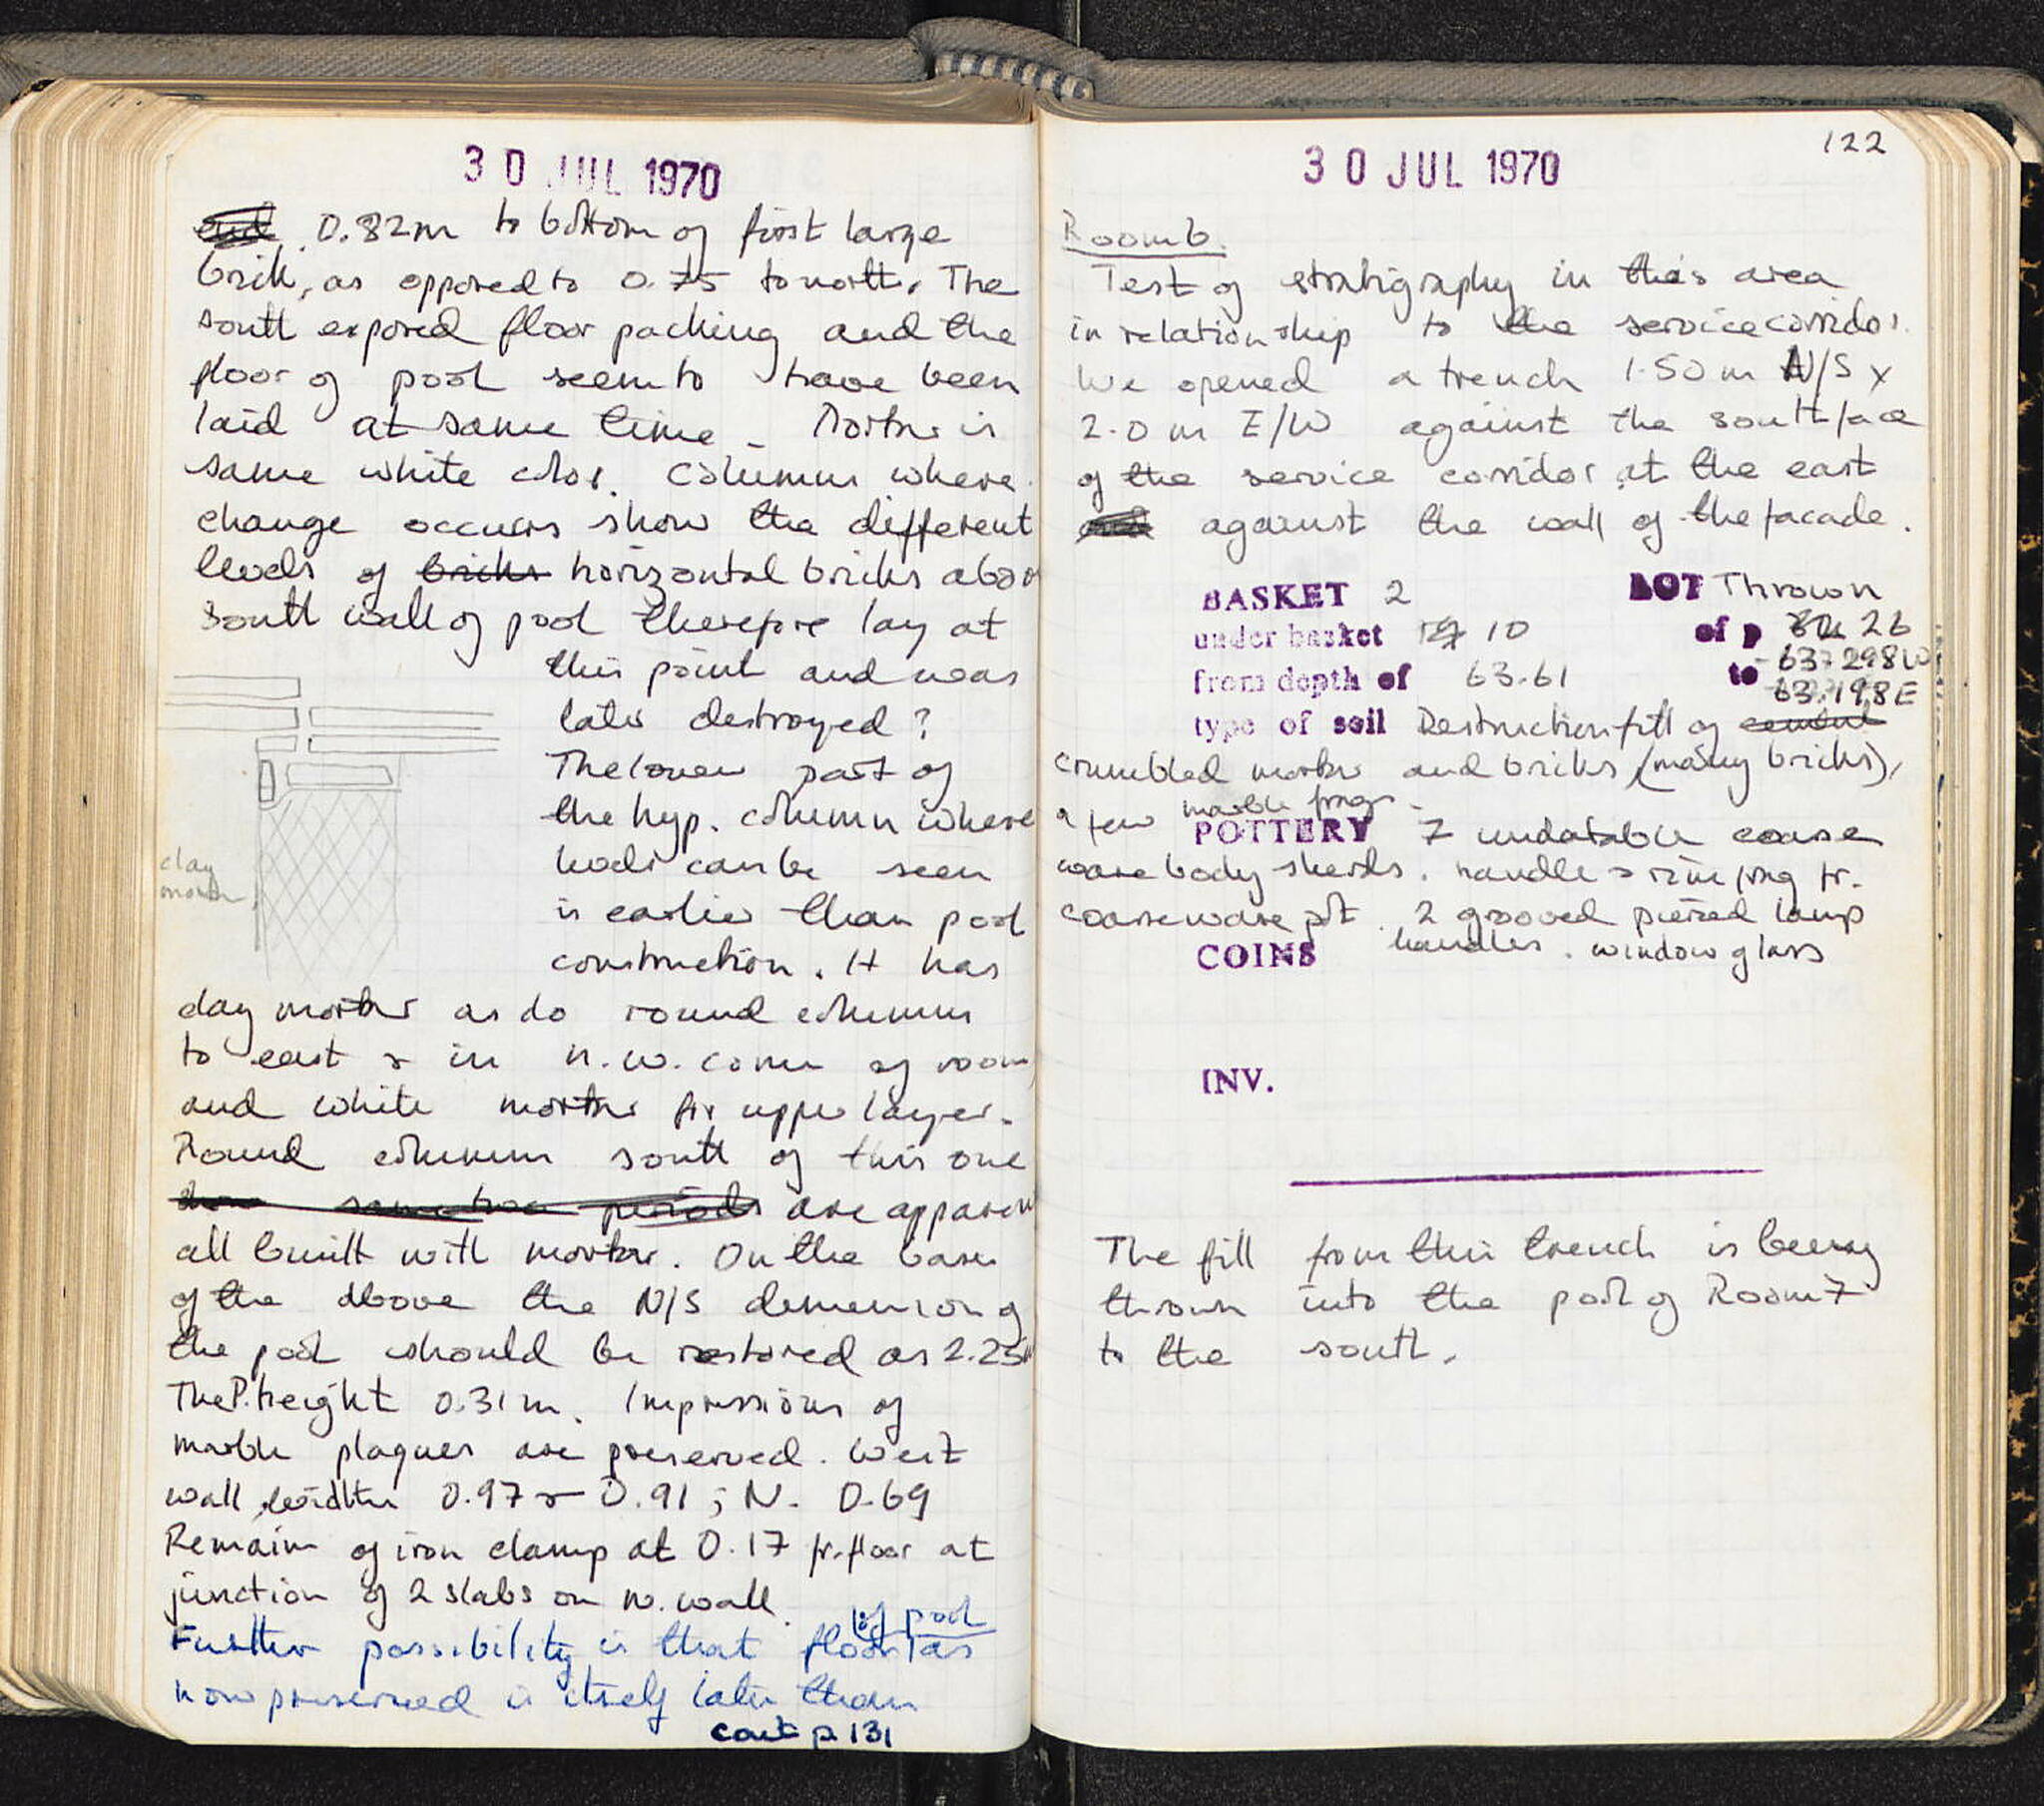 30 JUL 1970
end 0.82m to bottom of first large
brick, as opposed to 0.75 to north. The
south exposed floor packing and the
floor of pool seem to have been
laid at same time - Mortar is
same white color. Columns where
change occurs show the different
levels of bricks horizontal bricks above
South wall of pool therefore lay at
this point and was
later destroyed?
The lower part of
the hyp. column where
levels can be seen
is earlier than pool
construction. It has
clay
mortar
clay mortar as do round columns
to east & in n.w. corner of room
and white mortar for upper layer.
Round columns south of this one
periods are apparent
all built with mortar. On the basis
of the above the N/S dimension of
the pool should be restored as 2.25m
The P. height 0.31m. Impressions of
marble plaques are preserved. West
wall widths 0.97 & 0.91; N. 0.69
Remains of iron clamp at 0.17 fr. floor at
junction of 2 slabs on N. wall.
of pool
Further possibility is that floor as
now preserved is itself later than
cont p. 131
122
30 JUL 1970
Room 6.
Test of stratigraphy in this area
in relationship to the service corridor.
We opened a trench 1.50m N/S x
2.0m E/W against the south face
of the service corridor at the east
against the wall of the facade.
BASKET 2 LOT Thrown
under basket 10 of p 26
from depth of 63.61 to 63.298W
63.198E
type of soil Destruction fill of cement
crumbled mortar and bricks (many bricks),
a few marble frags.
POTTERY 7 undatable coarse
ware body sherds. handle & rim frag fr.
coarse ware pot. 2 grooved pierced lamp
handles. window glass
COINS
INV.
The fill from this trench is being
thrown into the pool of Room 7
to the south.